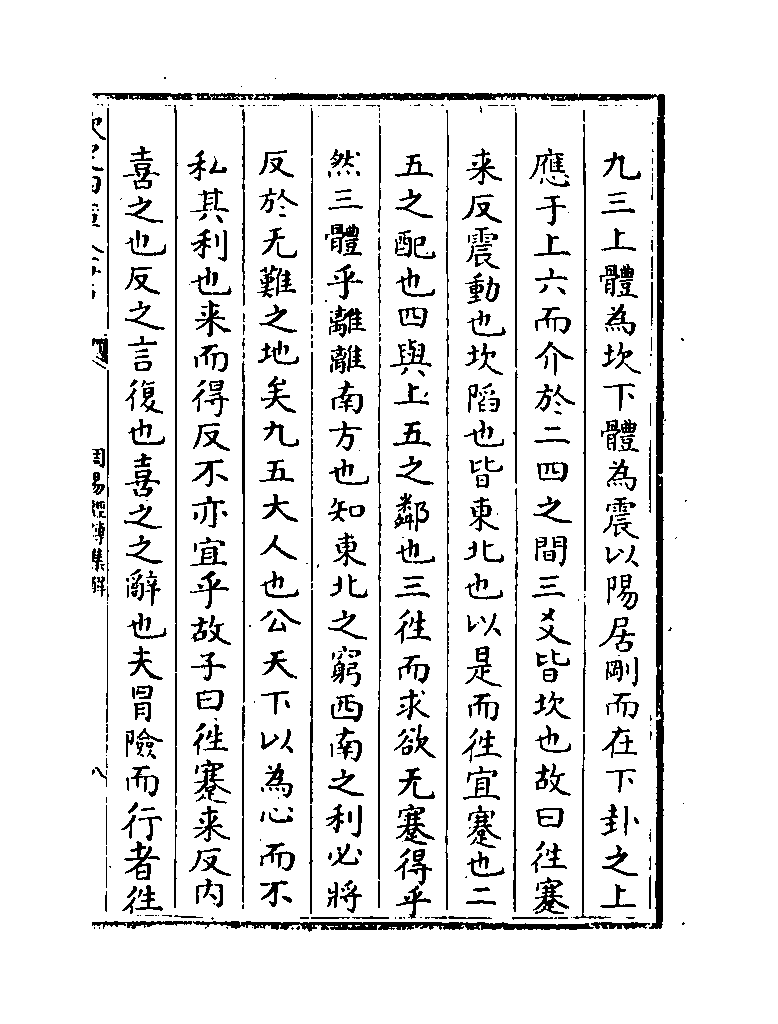 九三上體為坎下體為震以陽居剛而在下卦之上
應于上六而介於二四之間三爻皆坎也故曰徃蹇
来反震動也坎陷也皆東北也以是而徃宜蹇也二
五之配也四與上五之鄰也三徃而求欲无蹇得乎
然三體乎離離南方也知東北之窮西南之利必將
反於无難之地矣九五大人也公天下以為心而不
私其利也来而得反不亦宜乎故子曰徃蹇来反内
喜之也反之言復也喜之之辭也夫冒險而行者徃
周易經傳集解
八